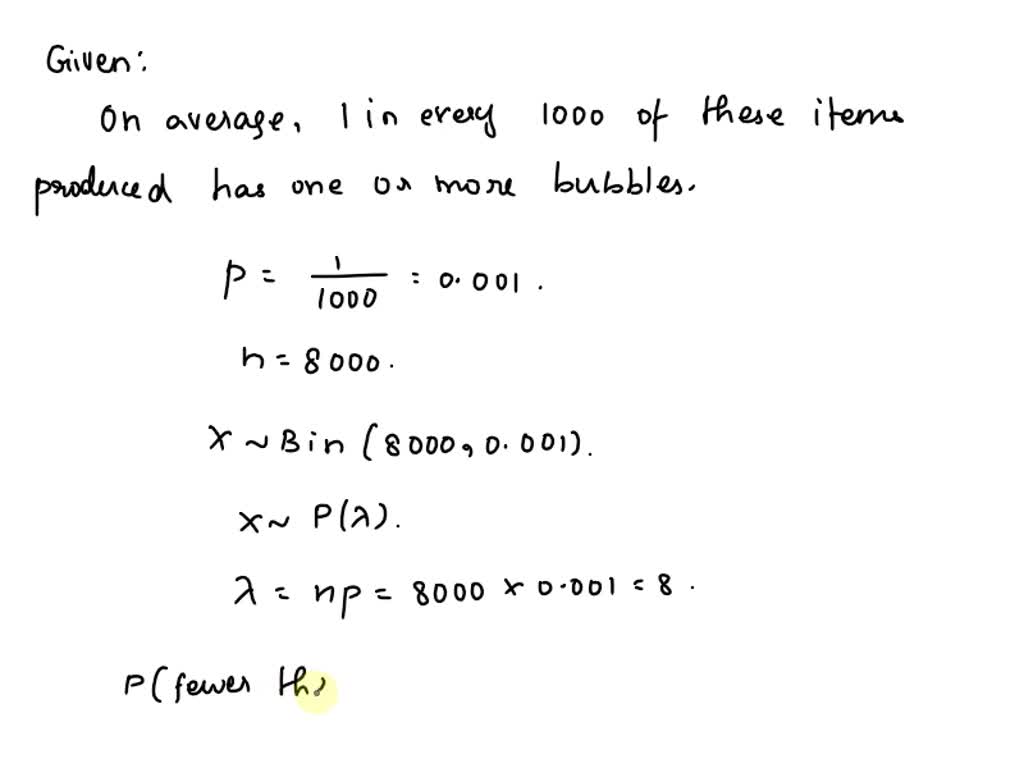 Given:
On average, 1 in every 1000 of these items
produced has one or more bubbles.
p = 1/1000 = 0.001.
n = 8000.
X ~ Bin (8000, 0.001).
X ~ P(λ).
λ = np = 8000 × 0.001 = 8.
P(fewer th